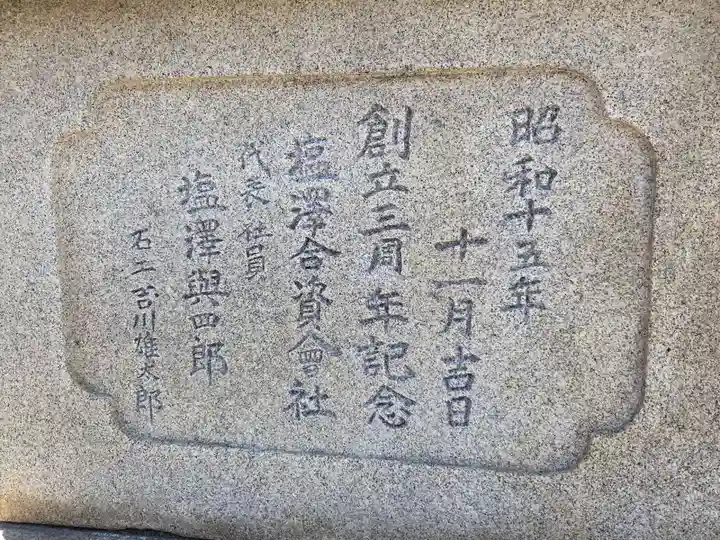 昭和十五年
十一月吉日
創立三周年記念
塩澤合資會社
代表社員
塩澤與四郎
石工 川雄太郎